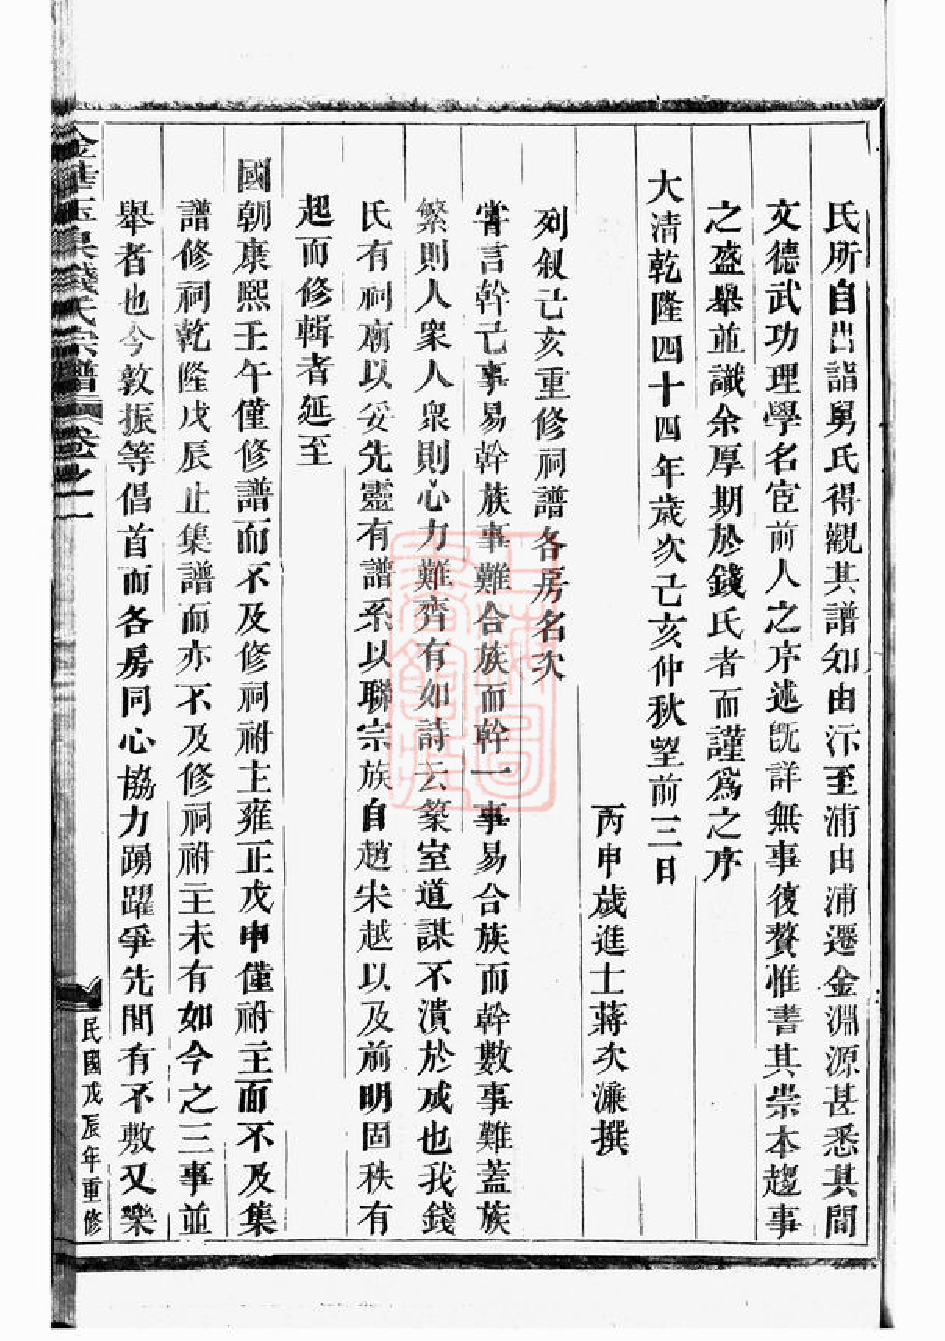 氏所自出詣舅氏得觀其譜知由汴至浦由浦遷金淵源甚悉其間
文德武功理學名宦前人之序述旣詳無事復贅惟書其崇本趨事
之盛舉並識余厚期於錢氏者而謹爲之序
大清乾隆四十四年歲次己亥仲秋望前三日
丙申歲進士蔣次濂撰
列叙己亥重修祠譜各房名次
嘗言幹己事易幹族事難合族而幹一事易合族而幹數事難蓋族
繁則人人衆人人衆則心力難齊有如詩云築室道謀不潰於成也我錢
氏有祠廟以妥先靈有譜系以聯宗族自趙宋越以及前明固秩有
起而修輯者延至
國朝康熙壬午僅修譜而不及修祠祔主雍正戊申僅祔主而不及集
譜修祠乾隆戊辰止集譜而亦不及修祠祔主未有如今之三事並
舉者也今敦振等倡首而各房同心協力踴躍爭先間有不敷又樂
金華玉泉錢氏宗譜 卷之一
民國戊辰年重修